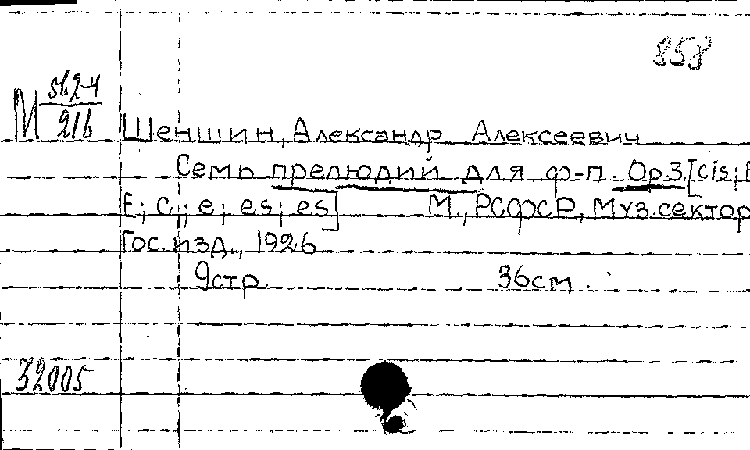 858
М 562-4
216
Шеншин, Александр Алексеевич
Семь прелюдий для ф-п. Op.3.[cis;
E; c; e; es; es] М., РСФСР, Муз.сектор
Гос.изд., 1926
9стр. 36см.
32005